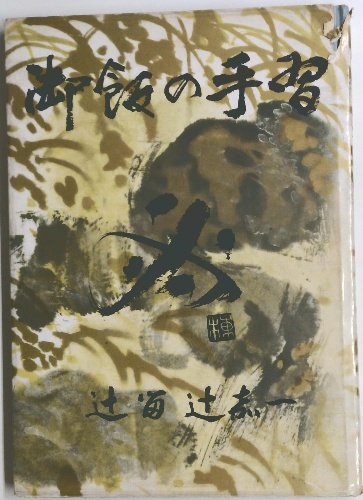 御飯の手習
必
辻留 辻嘉一